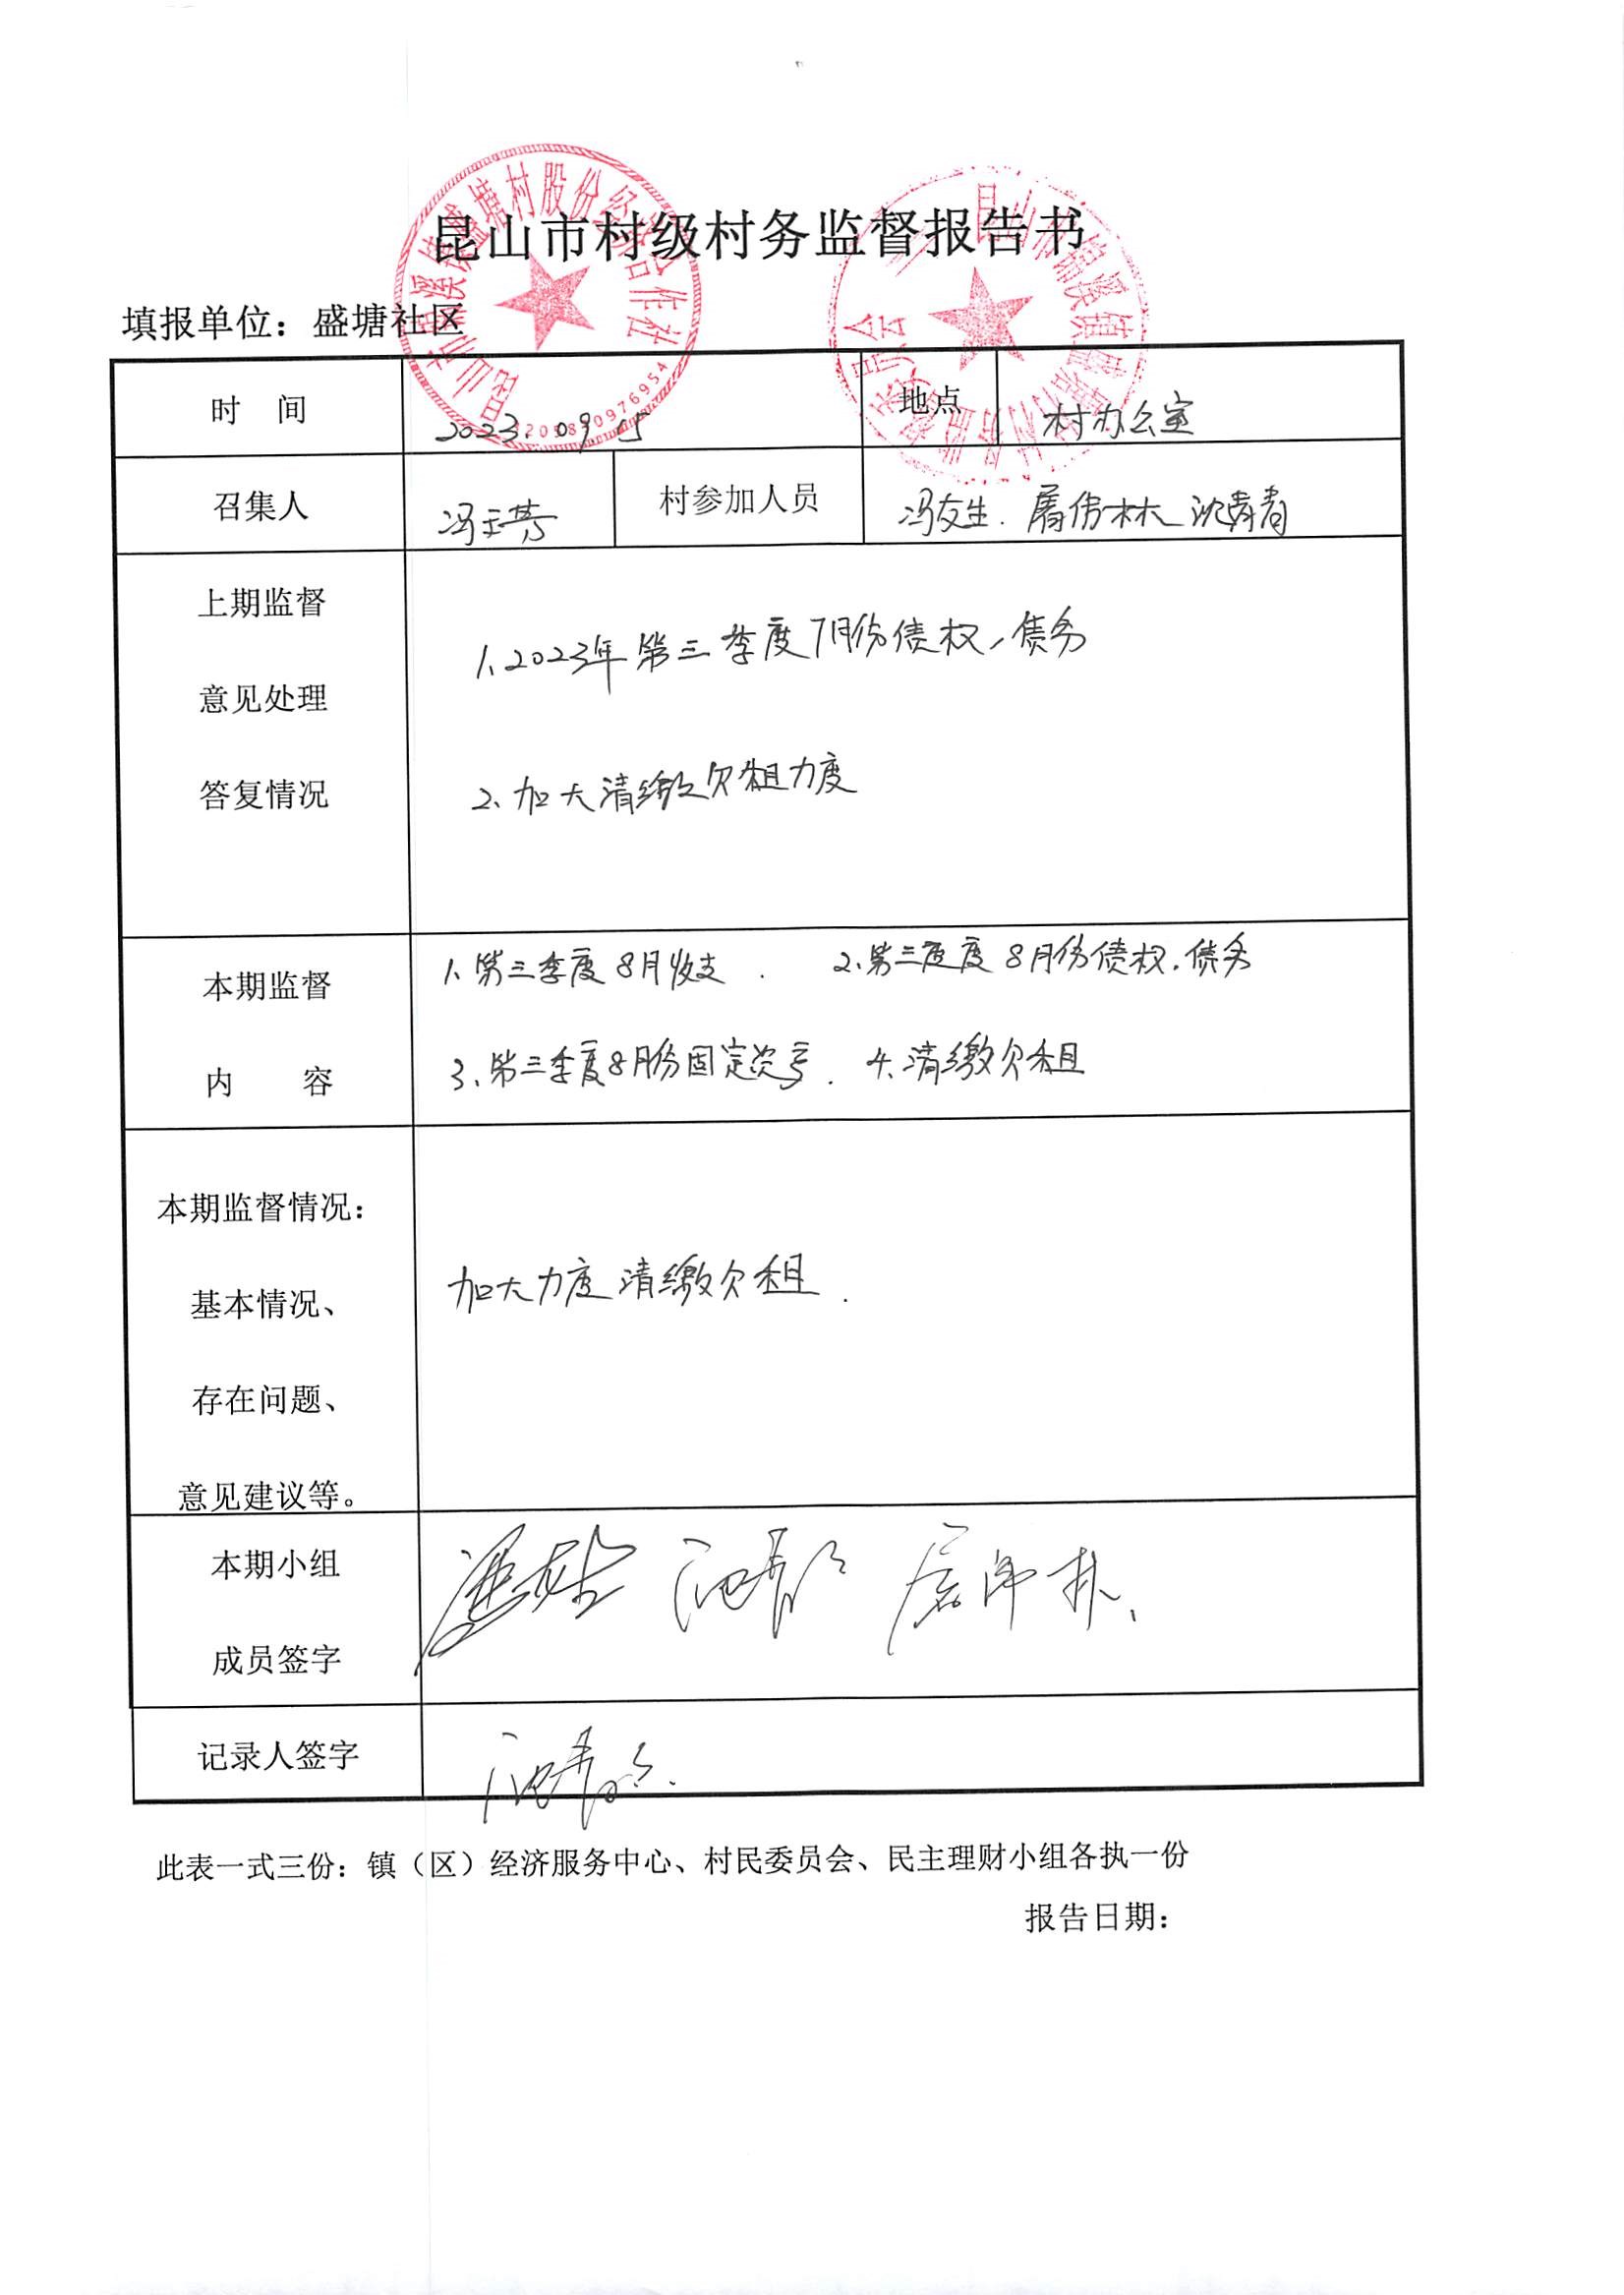 昆山市村级村务监督报告书
填报单位：盛塘社区
时 间
2023.09.15
地点
村办公室
召集人
冯玉芳
村参加人员
冯友生.屠伟林 沈青青
上期监督
意见处理
答复情况
1、2023年第三季度7月份债权、债务
2、加大清缴欠租力度
本期监督
内 容
1、第三季度8月收支. 2、第三季度8月份债权.债务
3、第三季度8月份固定资产. 4、清缴欠租
本期监督情况：
基本情况、
存在问题、
意见建议等。
加大力度清缴欠租.
本期小组
成员签字
记录人签字
此表一式三份：镇（区）经济服务中心、村民委员会、民主理财小组各执一份
报告日期：
昆山市锦溪镇盛塘村股份经济合作社
昆山市锦溪镇盛塘村村务监督委员会